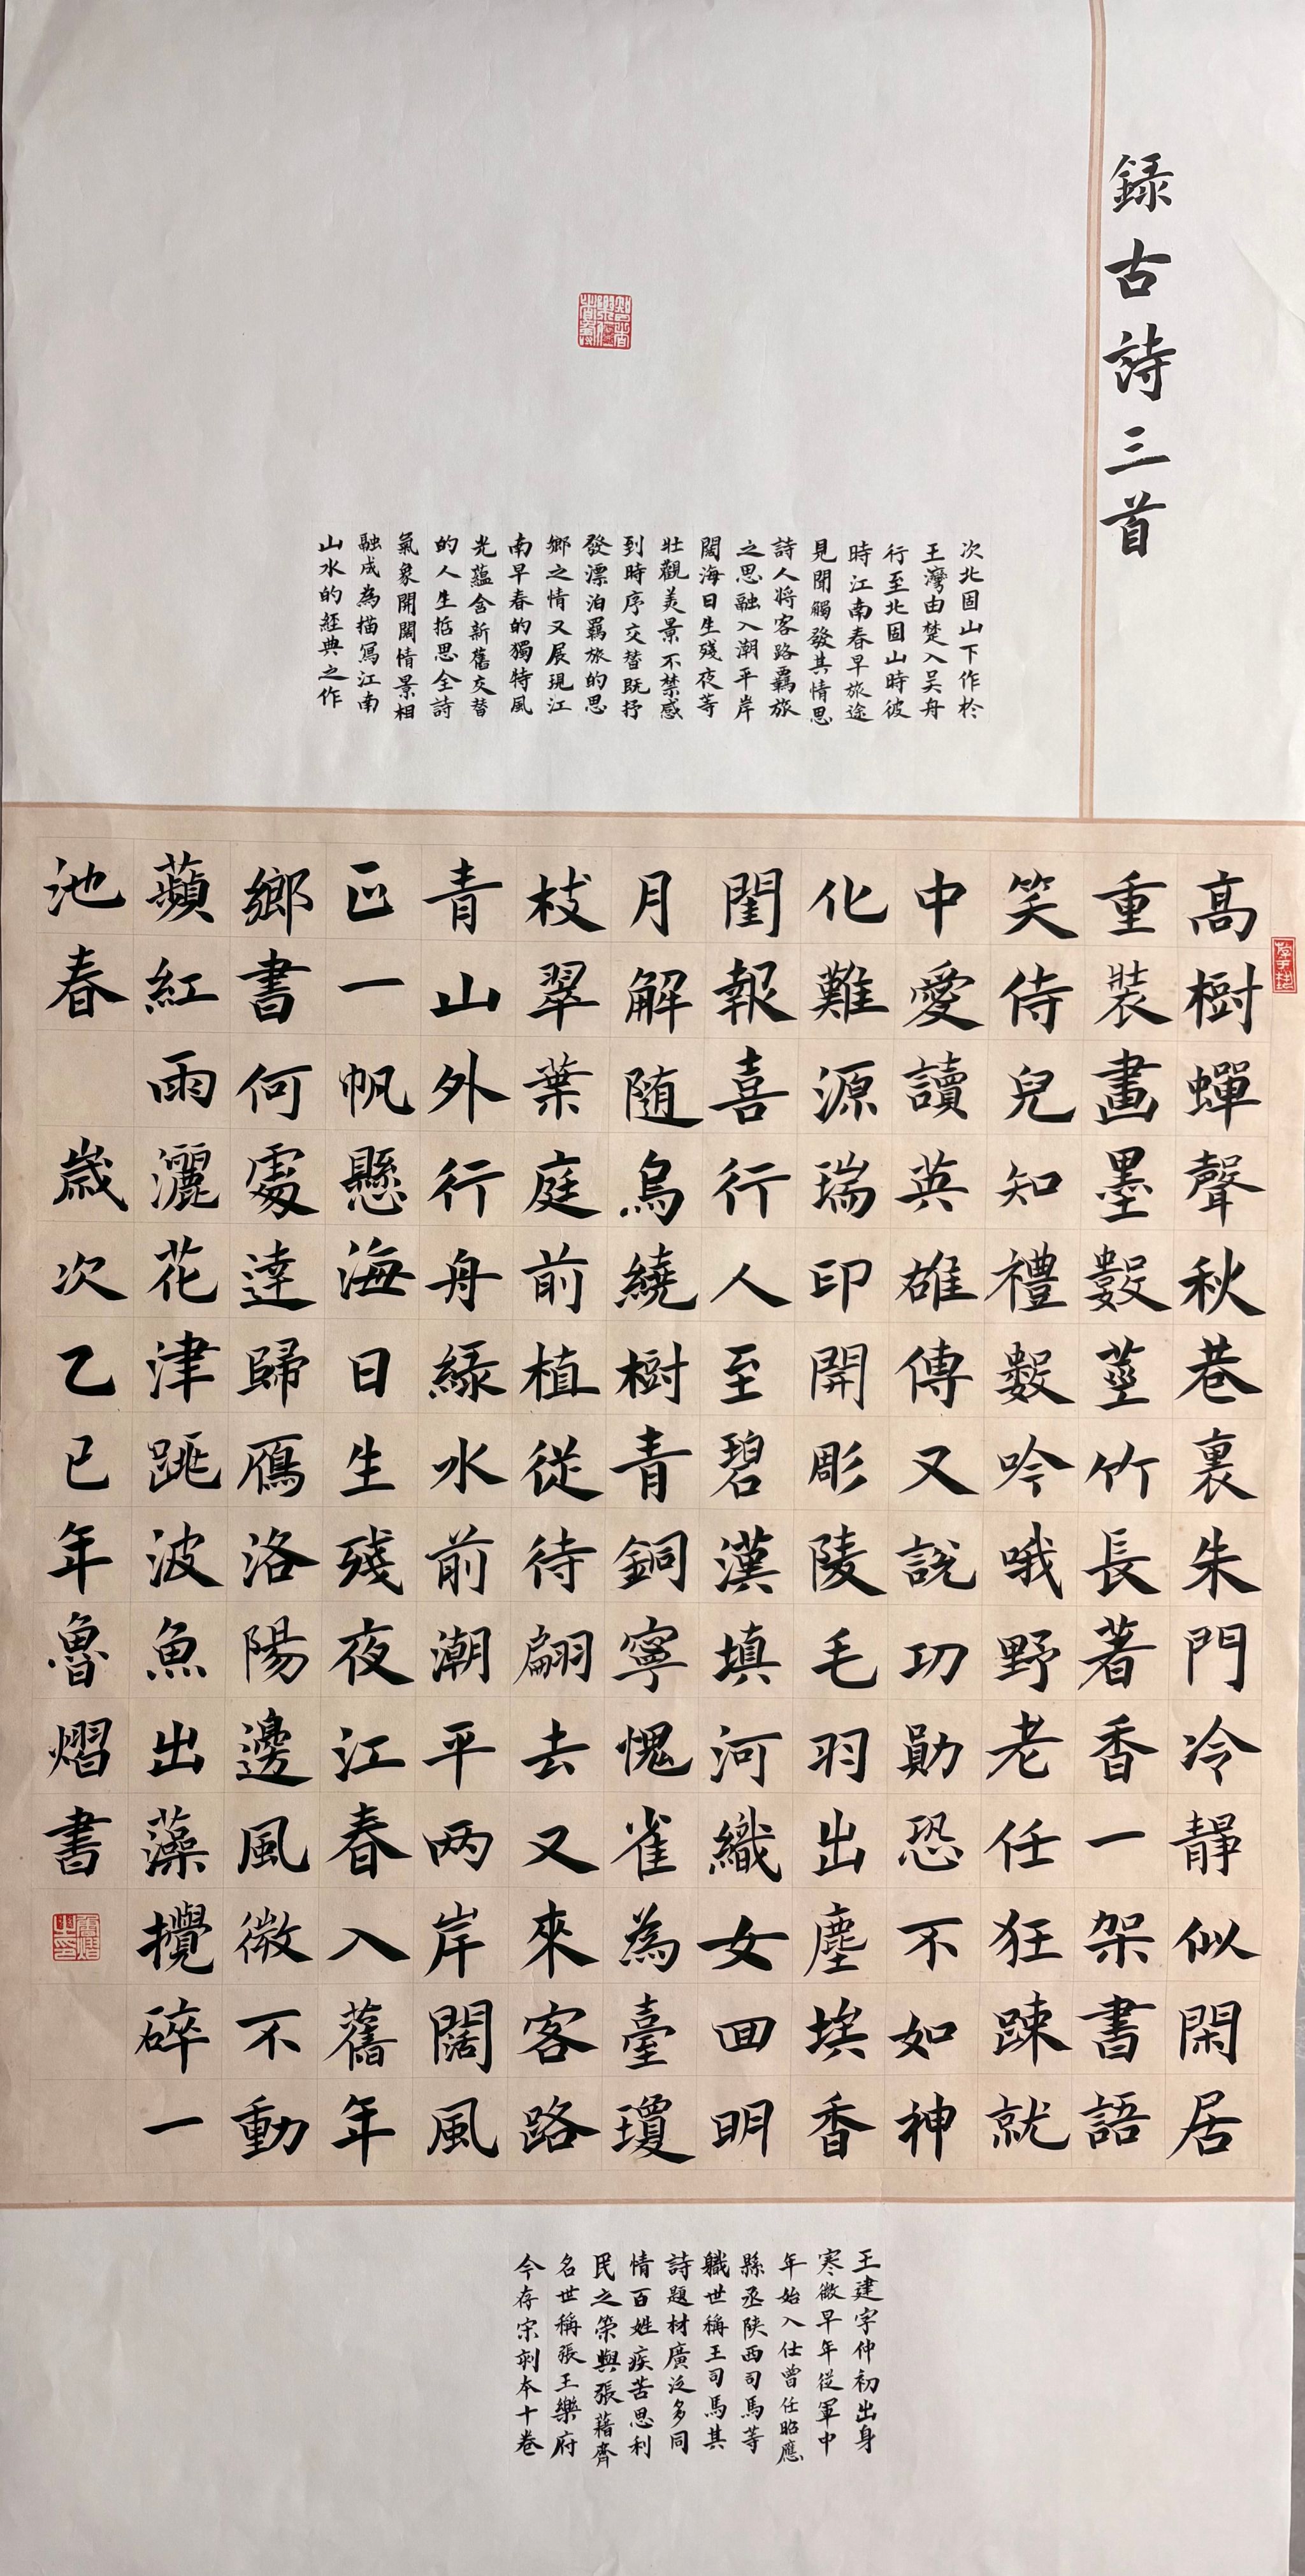 録古詩三首
次北固山下作於
王灣由楚入吴舟
行至北固山時彼
時江南春早旅途
見聞觸發其情思
詩人将客路羈旅
之思融入潮平岸
闊海日生殘夜等
壯觀美景不禁感
到時序交替既抒
發漂泊羁旅的思
鄉之情又展現江
南早春的獨特風
光蘊含新舊交替
的人生哲思全詩
氣象開闊情景相
融成為描寫江南
山水的經典之作
高樹蟬聲秋巷裏朱門冷靜似閑居
重裝畫墨數莖竹長著香一架書語
笑侍兒知禮數吟哦野老任狂踈就
中愛讀英雄傳又說功勛恐不如神
化難源瑞印開彫陵毛羽出塵埃香
閨報喜行人至碧漢填河織女回明
月解随烏繞樹青銅寧愧雀為臺瓊
枝翠葉庭前植從待翩去又來客路
青山外行舟緑水前潮平两岸闊風
正一帆懸海日生殘夜江春入舊年
鄉書何處達歸鴈洛陽邊風微不動
蘋紅雨灑花津跳波魚出藻攪碎一
池春 歲次乙巳年魯熠書
王建字仲初出身
寒微早年從軍中
年始入仕曾任昭應
縣丞陕西司馬等
職世稱王司馬其
詩題材廣泛多同
情百姓疾苦思利
民之策與張藉齊
名世稱張王樂府
今存宋刻本十卷